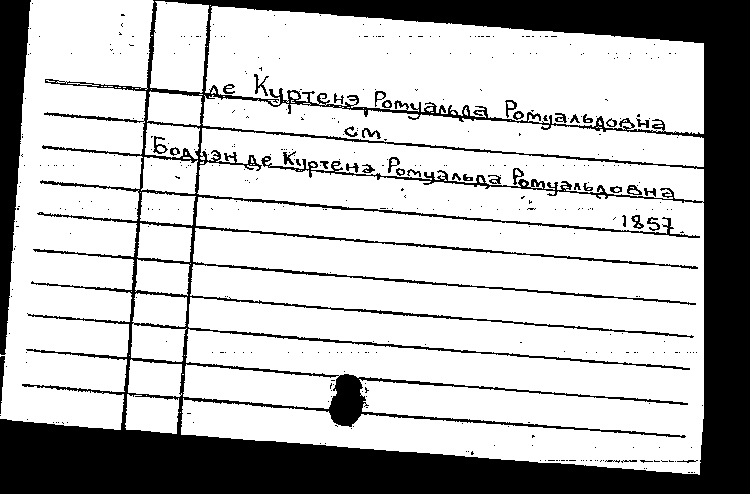 де Куртенэ, Ромуальда Ромуальдовна
см
Бодуэн де Куртенэ, Ромуальда Ромуальдовна
1857